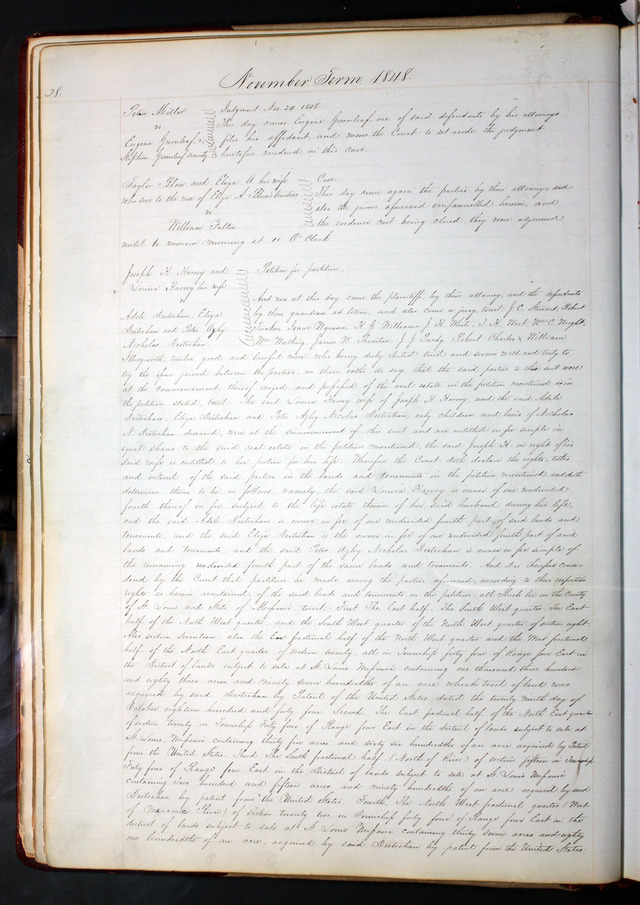 28.
November Term 1848.
Peter Miller
vs
Eugene Greenleaf &
Stephen Greenleaf
Judgment Nov. 24 1848
This day comes Eugene Greenleaf one of said defendants by his attorneys
files his affidavit and moves the Court to set aside the judgment
heretofore rendered in this case.
Taylor Blow and Eliza A. his wife
who sue to the use of Eliza A. Blow
vs
William Fulton
Case
This day come again the parties by their attorneys and
also the jurors aforesaid empannelled herein, and
the evidence not being closed they were adjourned
until to morrow morning at 10 O'Clock
Joseph H. Harvey and
Louisa Harvey his wife
vs
Adele Deitschan, Eliza
Deitschan and Peter
Nicholas Deitschan
Petition for partition.
And now at this day come the plaintiffs by their attorney, and the defendants
by their guardian ad litem, and also come a jury, towit: J. C. Stewart, Robert
Isaac Wyman, H. J. Williams, J. H. White, J. H. West, Wm C. Wright,
Wm Watling, James W. Thornton, J. J. Purdy, Robert Charles & William
twelve good and lawful men who being duly elected tried and sworn well and truly to
try the issue joined between the parties, on their oaths do say that the said parties to this suit were
at the commencement thereof seized and possessed of the real estate in the petition mentioned as in
the petition stated, towit: The said Louisa Harvey wife of Joseph H. Harvey, and the said Adele
Deitschan, Eliza Deitschan and Peter Nicholas Deitschan, only children and heirs of Nicholas
N. Deitschan deceased, were at the commencement of this suit and are entitled in fee simple in
equal shares to the said real estate in the petition mentioned, the said Joseph H. in right of his
said wife is entitled to her portion for his life. Wherefore the Court doth declare the rights, titles
and interest of the said parties in the lands and tenements in the petition mentioned and doth
determine them to be as follows, namely, the said Louisa Harvey is owner of one undivided
fourth thereof in fee subject to the life estate therein of her said husband during his life,
and the said Adele Deitschan is owner in fee of one undivided fourth part of said lands and
tenements, and the said Eliza Deitschan is the owner in fee of one undivided fourth part of said
lands and tenements, and the said Peter Nicholas Deitschan is owner in fee simple of
the remaining undivided fourth part of the same lands and tenements. And it is therefore consi-
dered by the Court that partition be made among the parties aforesaid, according to their respective
rights as herein ascertained, of the said lands and tenements in the petition, all which lie in the County
of St. Louis and State of Missouri towit. First The East half. The South West quarter, The East
half of the North West quarter, and the South West quarter of the North West quarter of section eight.
Also section Seventeen, also the East fractional half of the North West quarter and the West fractional
half of the North East quarter of section twenty, all in Township forty four of Range four East in
the District of lands subject to sale at St. Louis Missouri containing one thousand three hundred
and eighty three acres and ninety seven hundredths of an acre which tract of land was
acquired by said Deitschan by Patent of the United States dated the twenty ninth day of
October eighteen hundred and forty four. Second. The East fractional half of the North East quarter
of section twenty in Township Forty four of Range four East in the District of lands subject to sale at
St. Louis Missouri containing thirty five acres and sixty six hundredths of an acre acquired by Patent
from the United States. Third. The South fractional half (North of River) of section fifteen in Township
Forty four of Range four East in the District of lands subject to sale at St. Louis Missouri
containing two hundred and fifteen acres and ninety hundredths of an acre acquired by said
Deitschan by patent from the United States. Fourth, The North West fractional quarter (West
of Maramec River) of section twenty two in Township forty four of Range four East in the
district of lands subject to sale at St Louis Missouri containing thirty seven acres and eighty
one hundredths of an acre acquired by said Deitschan by patent from the United States.